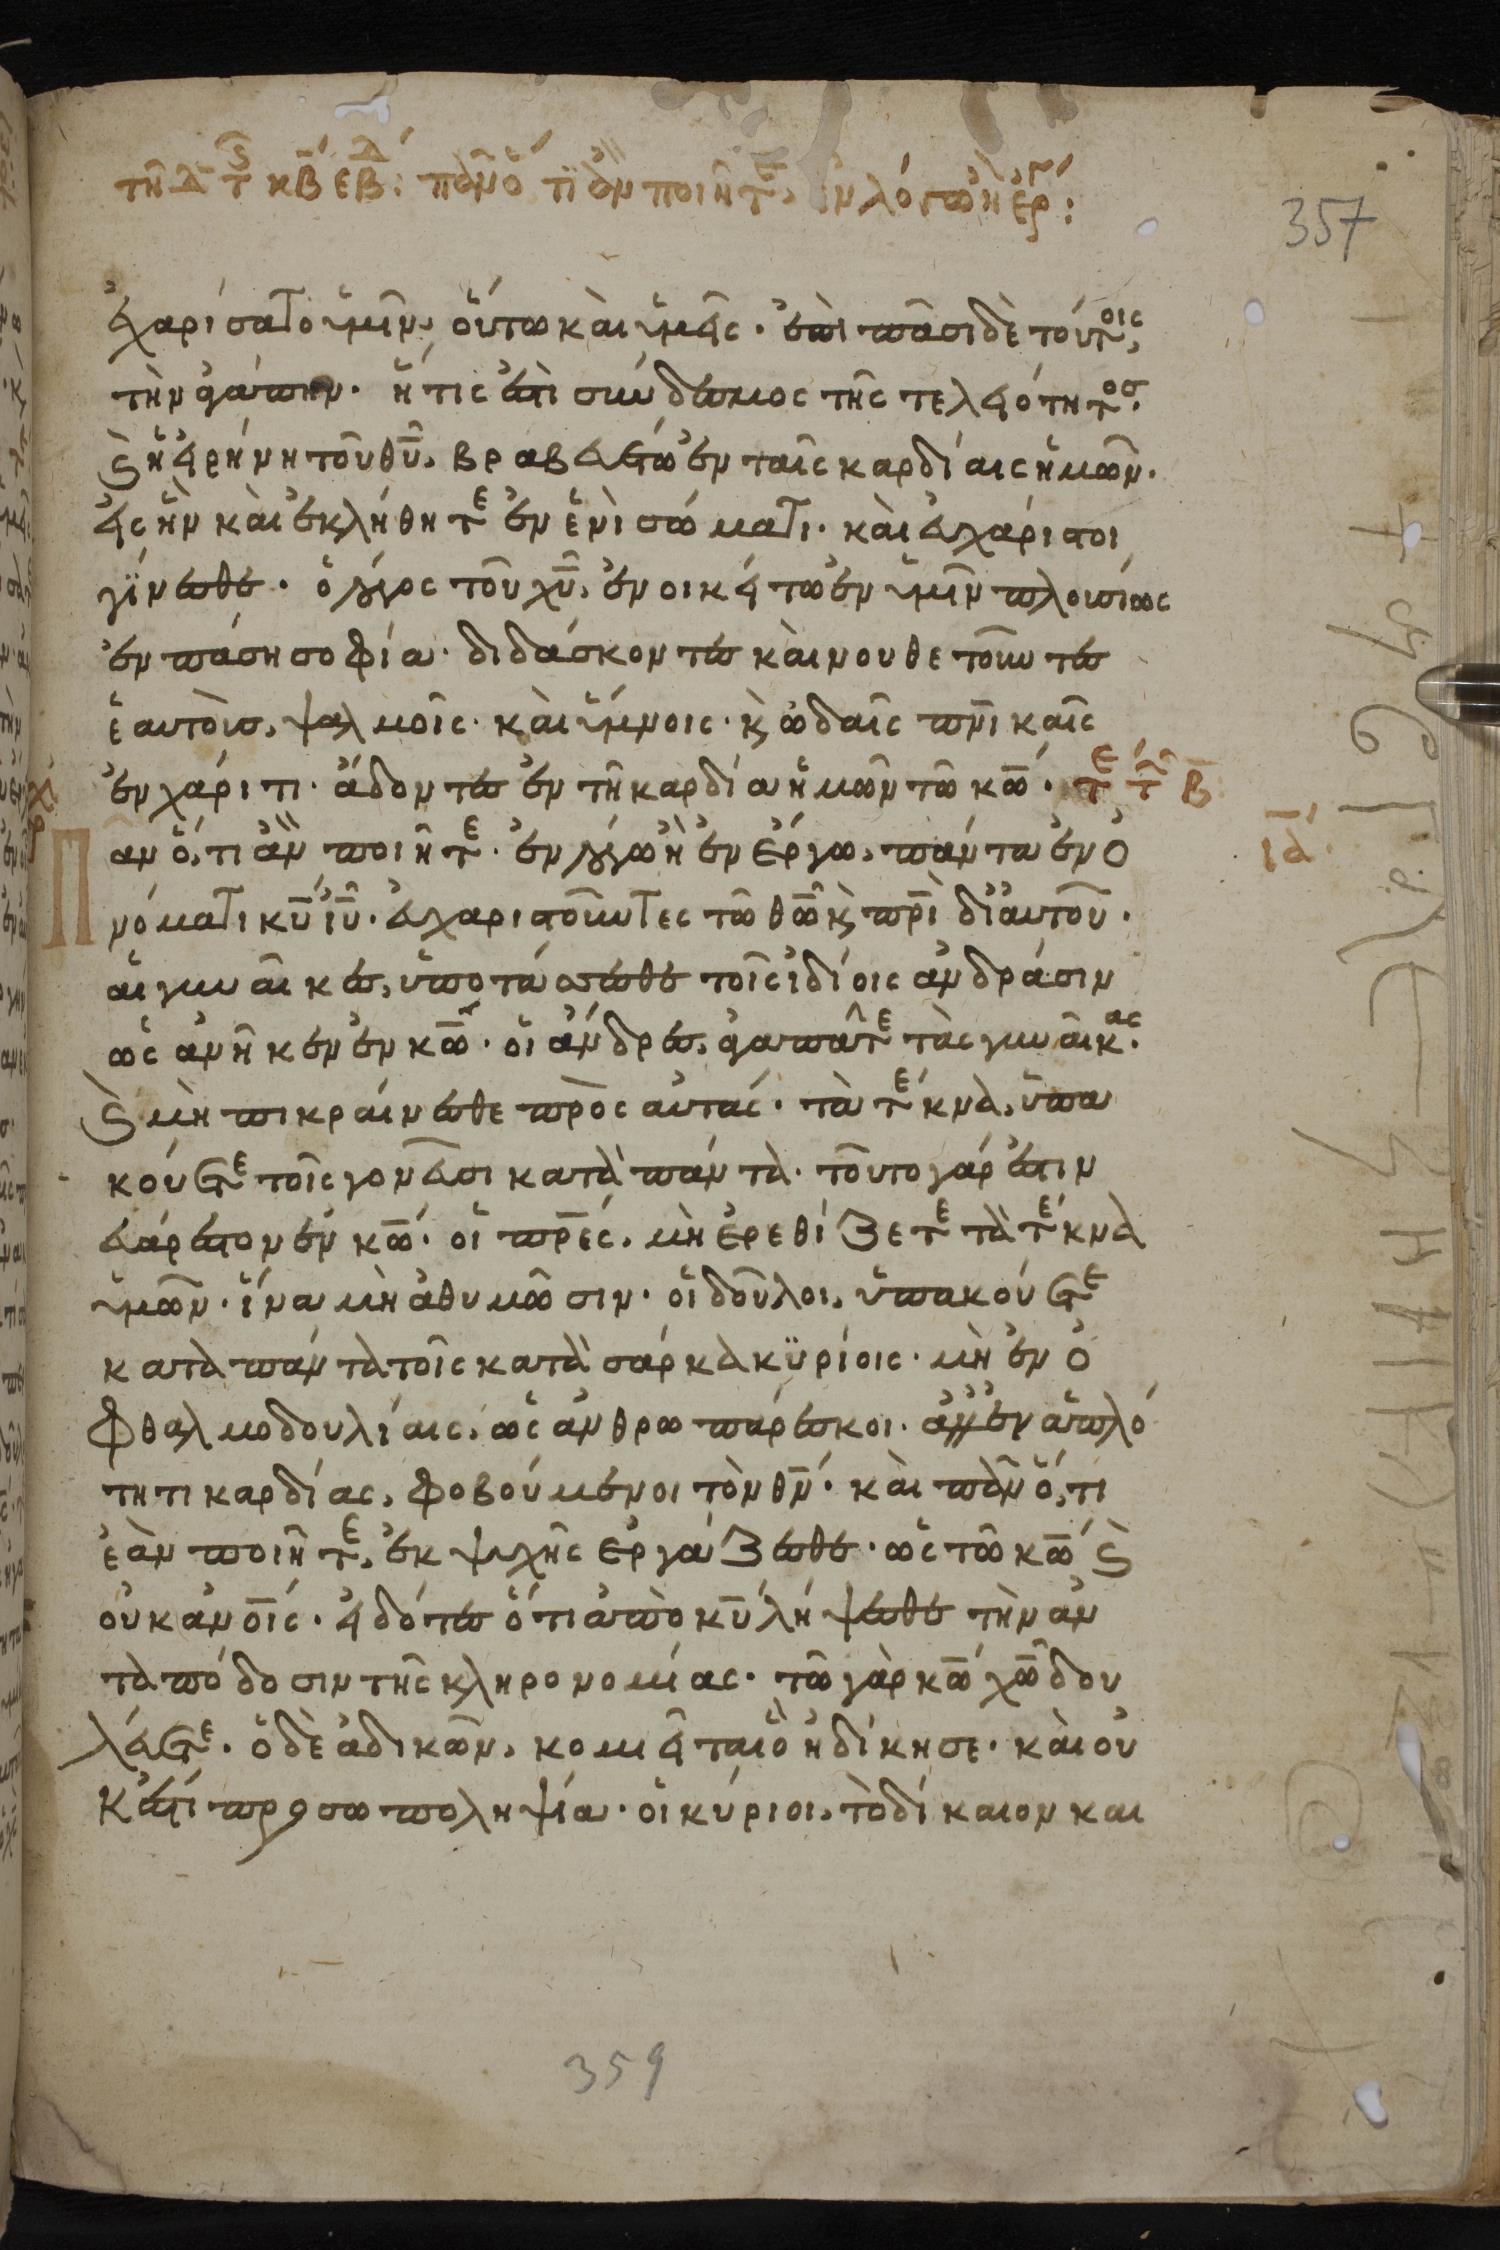 τῆ Δ τ κβ εβδ: πᾶν ὅ τι ἂν ποιῆτε, ἐν λόγω ἢ ἐρ:
357
ἐχαρίσατο ὑμῖν, οὕτω καὶ ὑμεῖς· ἐπὶ πᾶσι δὲ τούτοις,
τὴν ἀγάπην· ἥτις ἐστὶ σύνδεσμος τῆς τελειότητος·
Ϛ ἡ εἰρήνη τοῦ θυ, βραβευέτω ἐν ταῖς καρδίαις ἡμῶν·
εἰς ἣν καὶ ἐκλήθητε ἐν ἑνὶ σώματι· καὶ εὐχάριστοι
γίνεσθε· ὁ λόγος τοῦ χυ, ἐνοικείτω ἐν ὑμῖν πλουσίως
ἐν πάση σοφία· διδάσκοντες καὶ νουθετοῦντες
ἑαυτοὺς, ψαλμοῖς· καὶ ὕμνοις· κ ὠδαῖς πνικαῖς
ἐν χάριτι· ἄδοντες ἐν τῆ καρδία ἡμῶν τῶ κω· τε τ β
Πᾶν ὅ,τι ἂν ποιῆτε· ἐν λόγω ἢ ἐν ἔργω, πάντα ἐν ὀ
ιδ
νόματι κυ ιυ· εὐχαριστοῦντες τῶ θω κ πρι δι αυτοῦ·
αἱ γυναῖκες, ὑποτάσσεσθε τοῖς ἰδίοις ἀνδράσιν
ὡς ἀνῆκεν ἐν κω· οἱ ἄνδρες, ἀγαπᾶτε τὰς γυναῖκας·
Ϛ μὴ πικραίνεσθε πρὸς αὐτάς· τὰ τέκνα, ὑπα
κούετε τοῖς γονεῦσι κατὰ πάντα· τοῦτο γάρ ἐστιν
εὐάρεστον ἐν κω· οἱ πρες, μὴ ἐρεθίζετε τὰ τέκνα
ὑμῶν· ἵνα μὴ ἀθυμῶσιν· οἱ δοῦλοι, ὑπακούετε
κατὰ πάντα τοῖς κατὰ σάρκα κυρίοις· μὴ ἐν ὀ
φθαλμοδουλίαις, ὡς ἀνθρωπάρεσκοι· ἀλλ' ἐν ἁπλό
τητι καρδίας, φοβούμενοι τὸν θν· καὶ πᾶν ὅ,τι
ἐὰν ποιῆτε, ἐκ ψυχῆς ἐργάζεσθε· ὡς τῶ κω Ϛ
οὐκ ἀνοις· εἰδότες ὅτι ἀπὸ κυ λήψεσθε τὴν ἀν
ταπόδοσιν τῆς κληρονομίας· τῶ γὰρ κω χω δου
λεύετε· ὁ δὲ ἀδικῶν, κομιεῖται ὃ ἠδίκησε· καὶ οὐ
κ ἔστι προσωποληψία· οἱ κύριοι, τὸ δίκαιον και
359